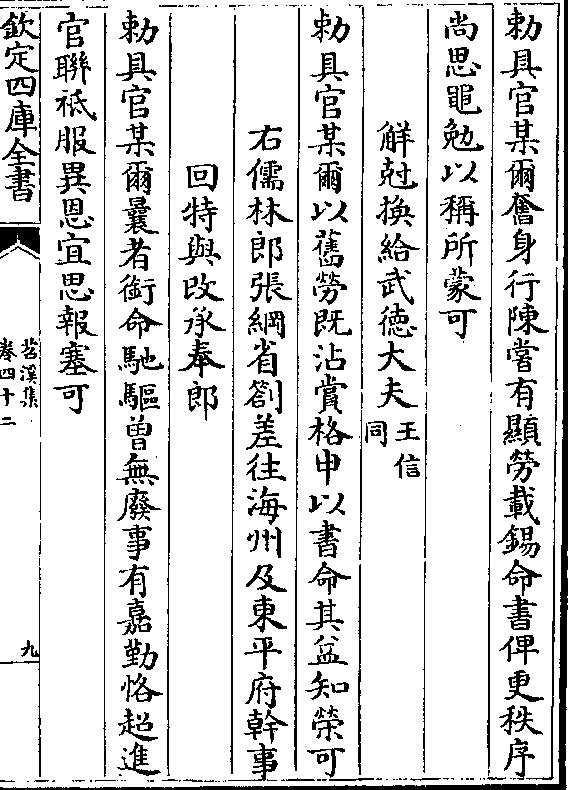 勅具官某爾奮身行陳嘗有顯勞載錫命書俾更秩序
尚思黽勉以稱所蒙可
解尅換給武徳大夫王信同
勅具官某爾以舊勞既沾賞格申以書命其益知榮可
右儒林郎張綱省劄差往海州及東平府幹事
回特與改承奉郎
勅具官某爾曩者銜命馳驅曽無廢事有嘉勤恪超進
官聯祗服異恩宜思報塞可
欽定四庫全書
苕溪集
卷四十二
九